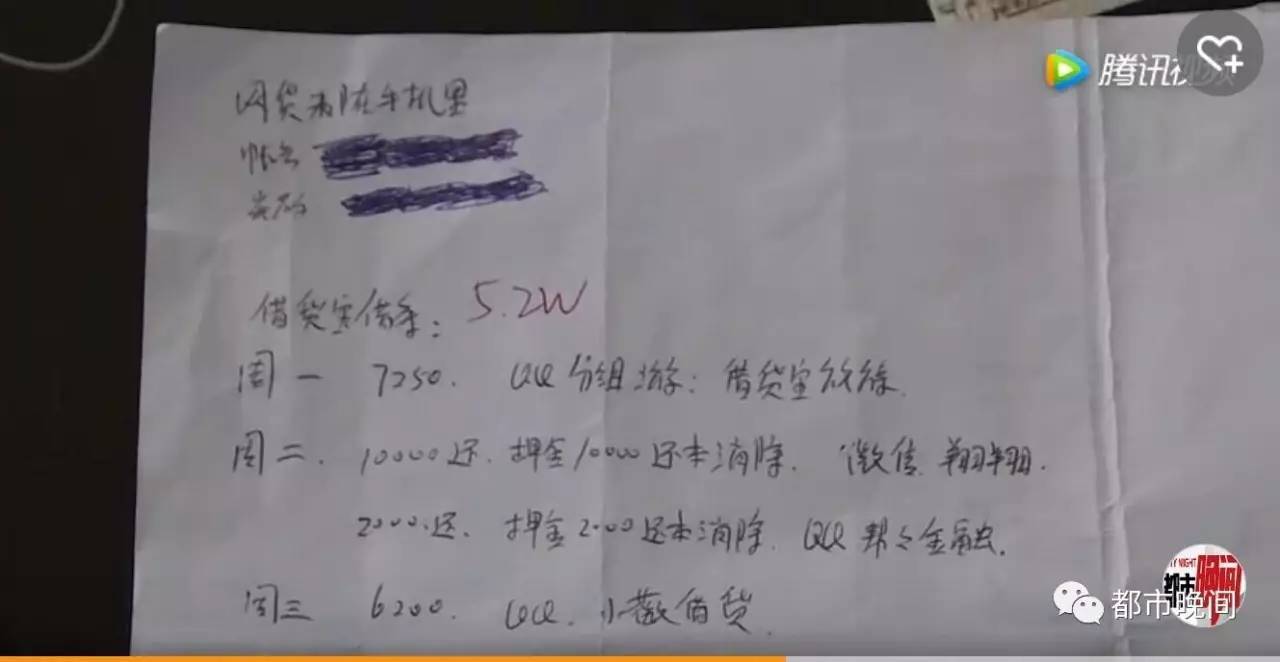 腾讯视频
网贷都在手机里
帐号
密码
借贷宝借条: 5.2W
周一 7250. QQ 分组 : 借贷宝
周二. 10000还. 押金10000还未消除. 微信 翔翔.
2000还. 押金2000还未消除. QQ 帮之金融.
周三 6200. QQ. 小 借贷.
都市晚间
Y NIGHT
都市晚间